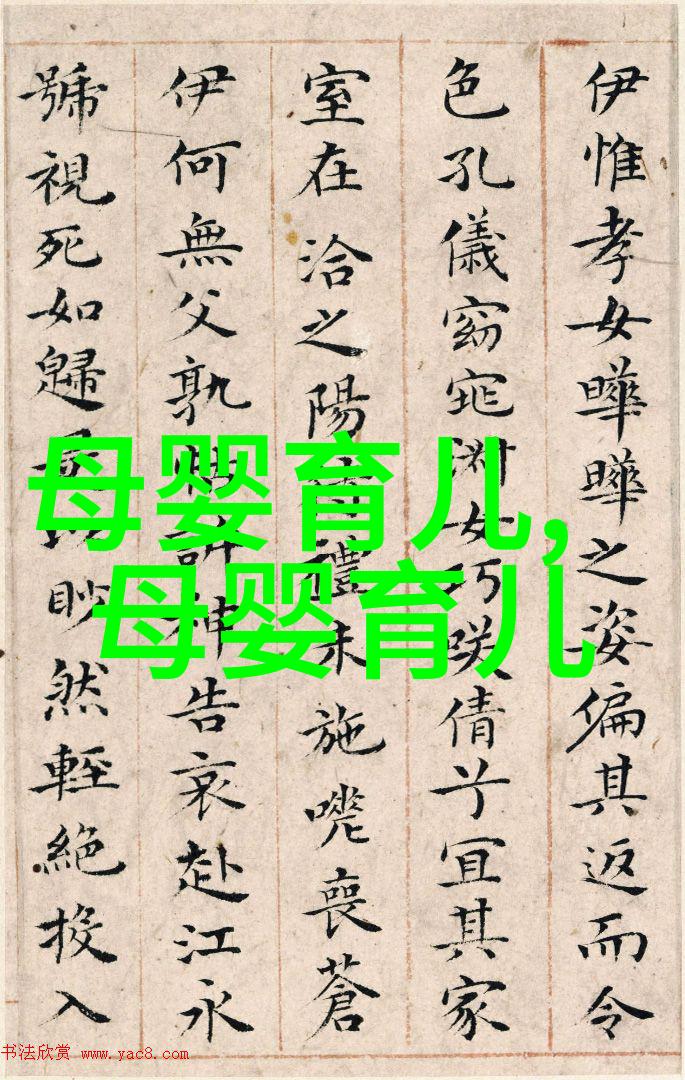 伊惟孝女曄曄之姿偏其返而令
色孔儀窈窕淑女巧咲倩兮宜其家
室在洽之陽待禮未施嗟喪蒼
伊何無父孰怙訴神告哀赴江永
號視死如歸是以眇然輕絕投入
母婴育儿,
母婴育儿
书法欣赏 www.yac8.com